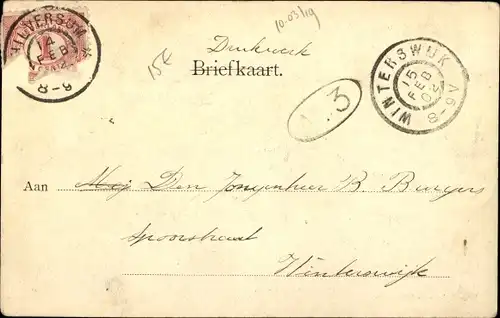 10-03/19
HILVERSUM
14
FEB
8-9
1
15€
Drukwerk
Briefkaart.
WINTERSWIJK
15
FEB
02
8-9V
3
Aan Mej Den Jongenheer B. Burgers
Spoorstraat
Winterswijk